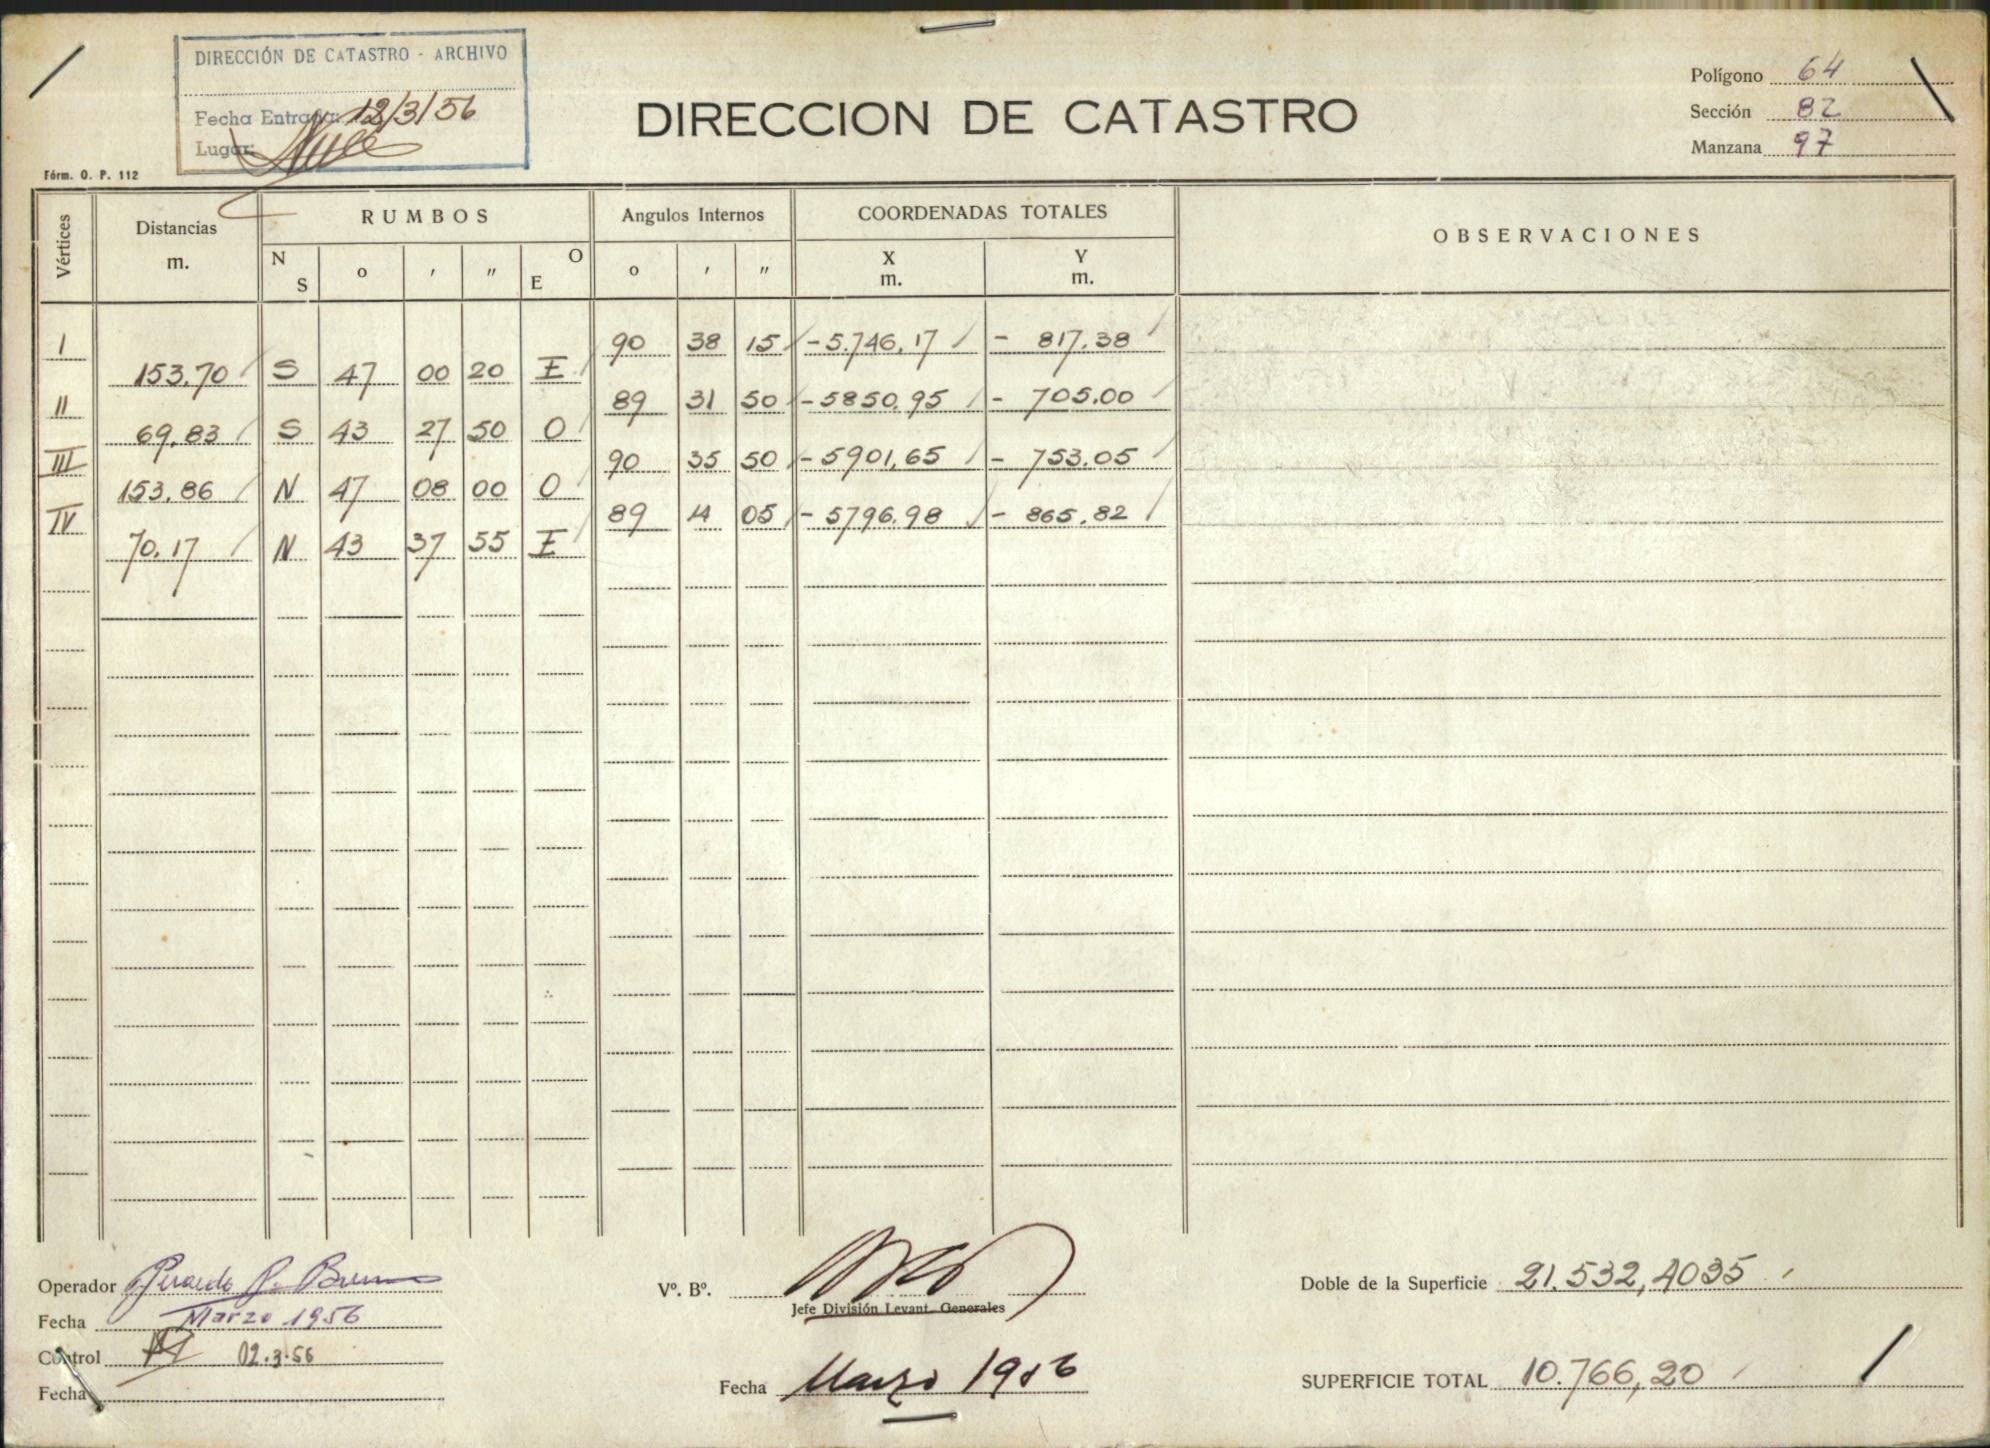 DIRECCIÓN DE CATASTRO - ARCHIVO
Fecha Entrada: 12/3/56
Lugar:
Fórm. O. P. 112
DIRECCION DE CATASTRO
Polígono 64
Sección 82
Manzana 97
Vértices Distancias m. RUMBOS Angulos Internos COORDENADAS TOTALES OBSERVACIONES
N S o ' " O E o ' " X m. Y m.
I 90 38 15 -5.746,17 - 817.38
153.70 S 47 00 20 E
II 89 31 50 -5850.95 - 705.00
69.83 S 43 27 50 O
III 90 35 50 -5901,65 - 753.05
153.86 N 47 08 00 O
IV 89 14 05 -5796.98 - 865.82
70.17 N 43 37 55 E
Operador
Fecha Marzo 1956
Control 02.3.56
Fecha
Vº. Bº.
Jefe División Levant. Generales
Fecha Marzo 1956
Doble de la Superficie 21.532,4035
SUPERFICIE TOTAL 10.766,20